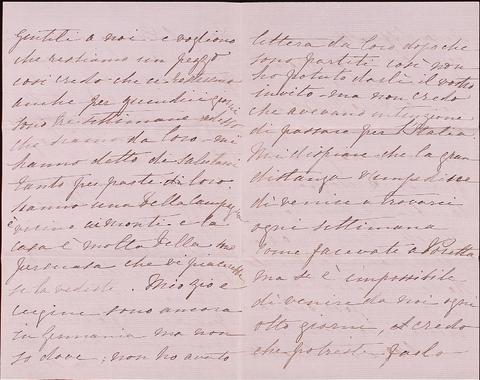 gentili a noi e vogliono
che restiamo un pezzo
così credo che ci resteremo
anche per quindici giorni
sono tre settimane adesso
che stanno da loro mi
hanno detto di salutarvi
tanto per parte di loro.
hanno una bella campagna
è vicino ai monti e la
casa è molto bella ma
persuasa che vi piacerebbe
se la vedeste. Mio zio e
cugine sono ancora
in Germania ma non
so dove; non ho avuto
lettera da loro dopo che
sono partiti così non
ho potuto darli il vostro
invito ma non credo
che avevano intenzione
di passare per l'Italia.
Mi dispiace che la gran
distanza v'impedisce
di venire a trovarci
ogni settimana
come facevate a
ma se è impossibile
di venire da noi ogni
otto giorni, credo
che potreste farlo